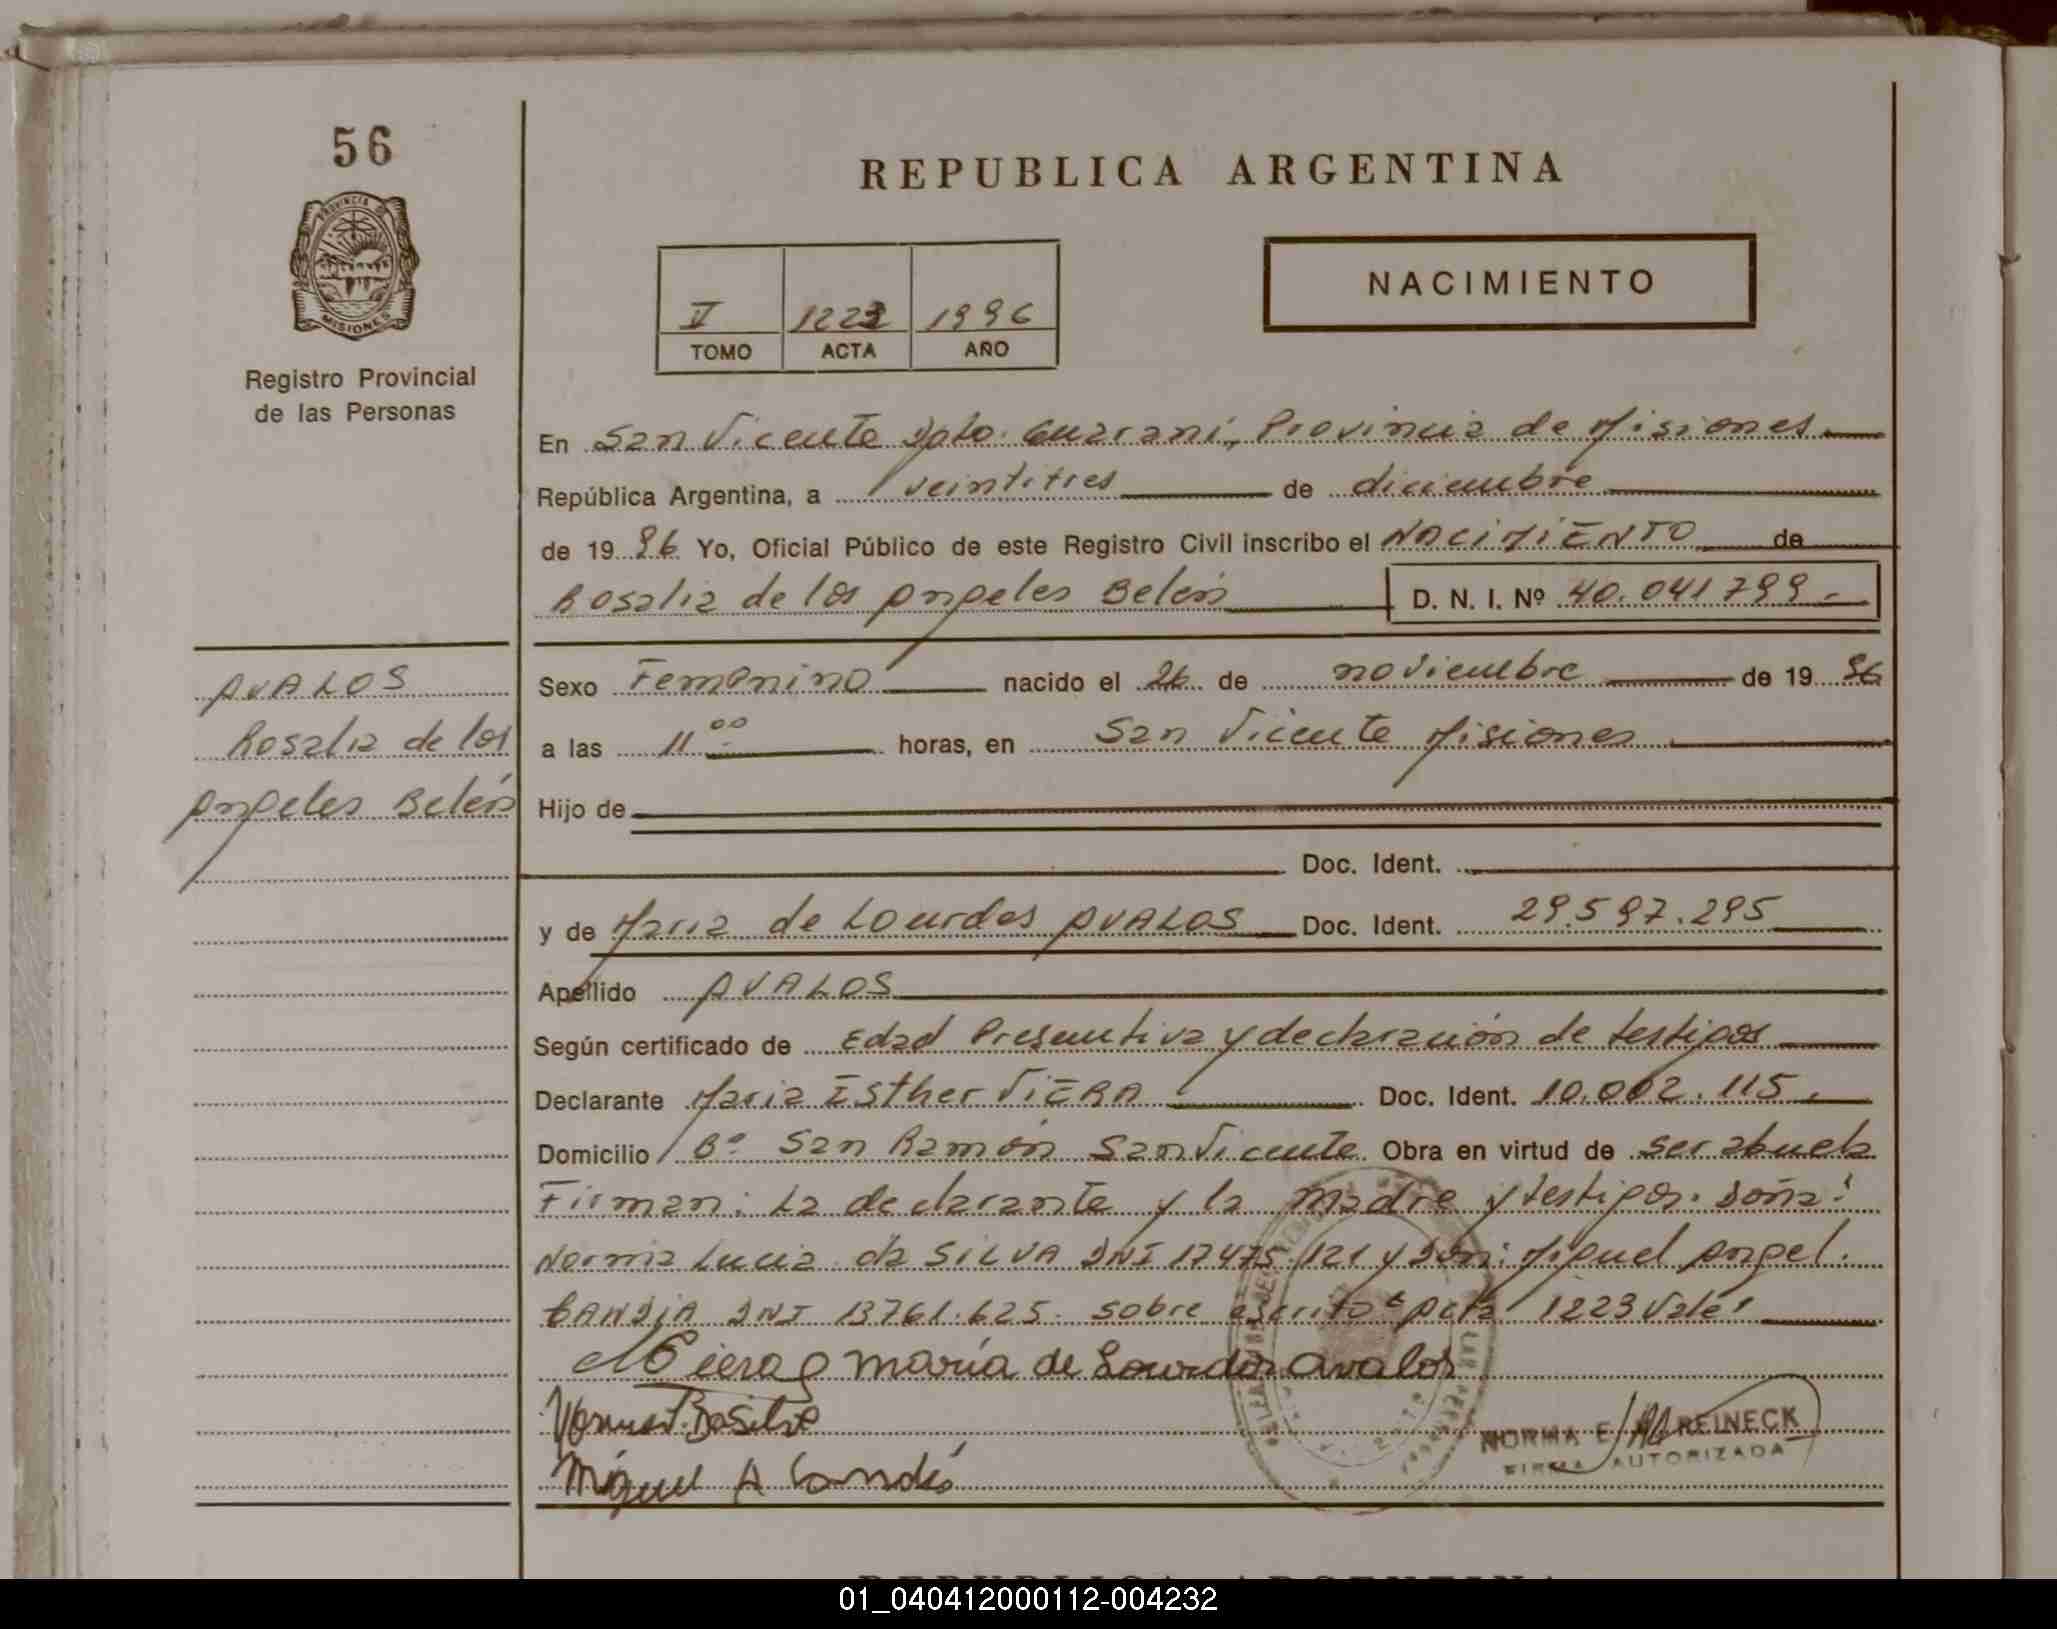 56
REPUBLICA ARGENTINA
PROVINCIA DE
MISIONES
Registro Provincial
de las Personas
NACIMIENTO
V 1223 1996
TOMO ACTA AÑO
En San Vicente Dpto. Guaraní, Provincia de Misiones
República Argentina, a veintitres de diciembre
de 19 96 Yo, Oficial Público de este Registro Civil inscribo el NACIMIENTO de
Rosalia de los Angeles Belén D. N. I. Nº 40.041799.-
AVALOS
Rosalia de los
Angeles Belén
Sexo Femenino nacido el 26 de noviembre de 19 96
a las 11 00 horas, en San Vicente Misiones
Hijo de
Doc. Ident.
y de Maria de Lourdes AVALOS Doc. Ident. 29.597.295
Apellido AVALOS
Según certificado de Edad Presuntiva y declaración de testigos
Declarante Maria Esther VIERA Doc. Ident. 10.002.115.
Domicilio Bº San Ramón San Vicente Obra en virtud de ser abuela
Firman: La declarante y la madre y testigos. Doña:
Norma Lucia da SILVA DNI 17475.121 y Don: Miguel Angel.
CANDIA DNI 13761.625. sobre escrito "Acta 1223 Vale"
María de Lourdes Avalos
Miguel A Candia
NORMA E. REINECK
FIRMA AUTORIZADA
REPUBLICA ARGENTINA
01_040412000112-004232